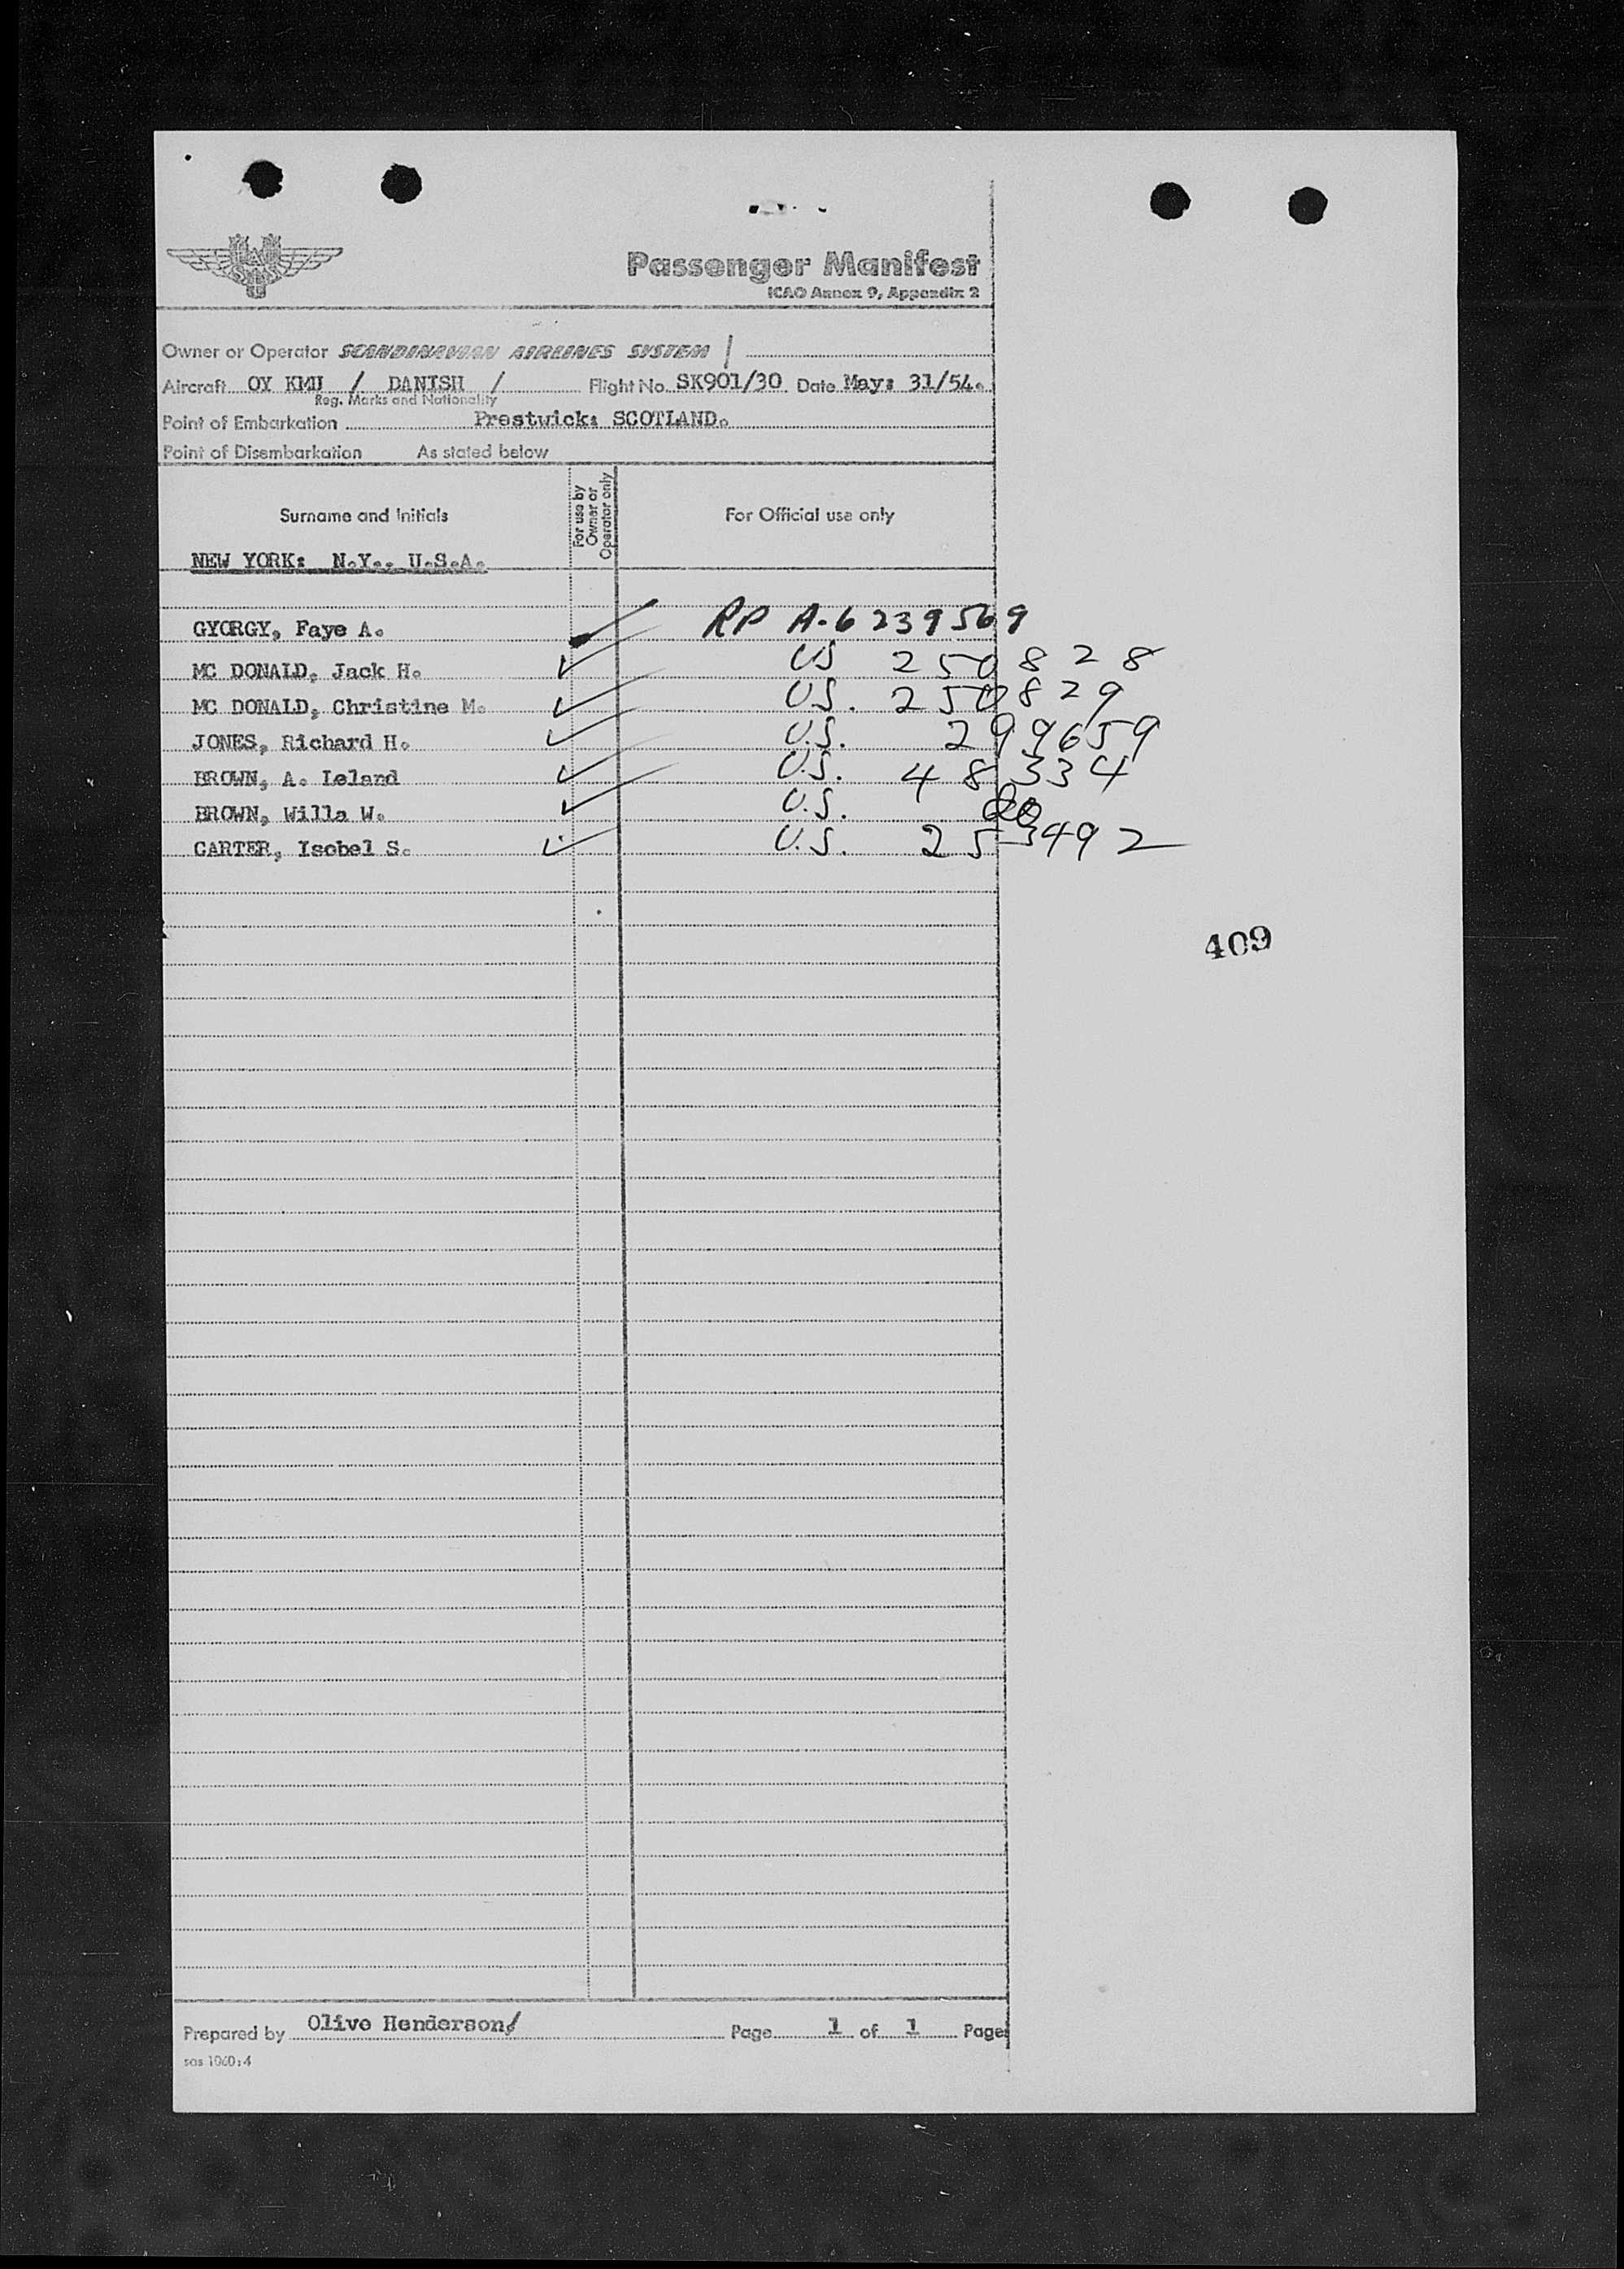 Passenger Manifest
ICAO Annex 9, Appendix 2
Owner or Operator SCANDINAVIAN AIRLINES SYSTEM /
Aircraft OY KMU / DANISH / Flight No. SK901/30 Date May: 31/54.
Reg. Marks and Nationality
Point of Embarkation Prestwick: SCOTLAND.
Point of Disembarkation As stated below
Surname and Initials
For use by Owner or Operator only
For Official use only
NEW YORK: N.Y., U.S.A.
GYORGY, Faye A. RP A-6 239569
MC DONALD, Jack H. US 250828
MC DONALD, Christine M. US. 250829
JONES, Richard H. U.S. 299659
BROWN, A. Leland U.S. 48334
BROWN, Willa W. U.S. do
CARTER, Isobel S. U.S. 253492
409
Prepared by Olive Henderson/ Page 1 of 1 Pages
sas 1060:4